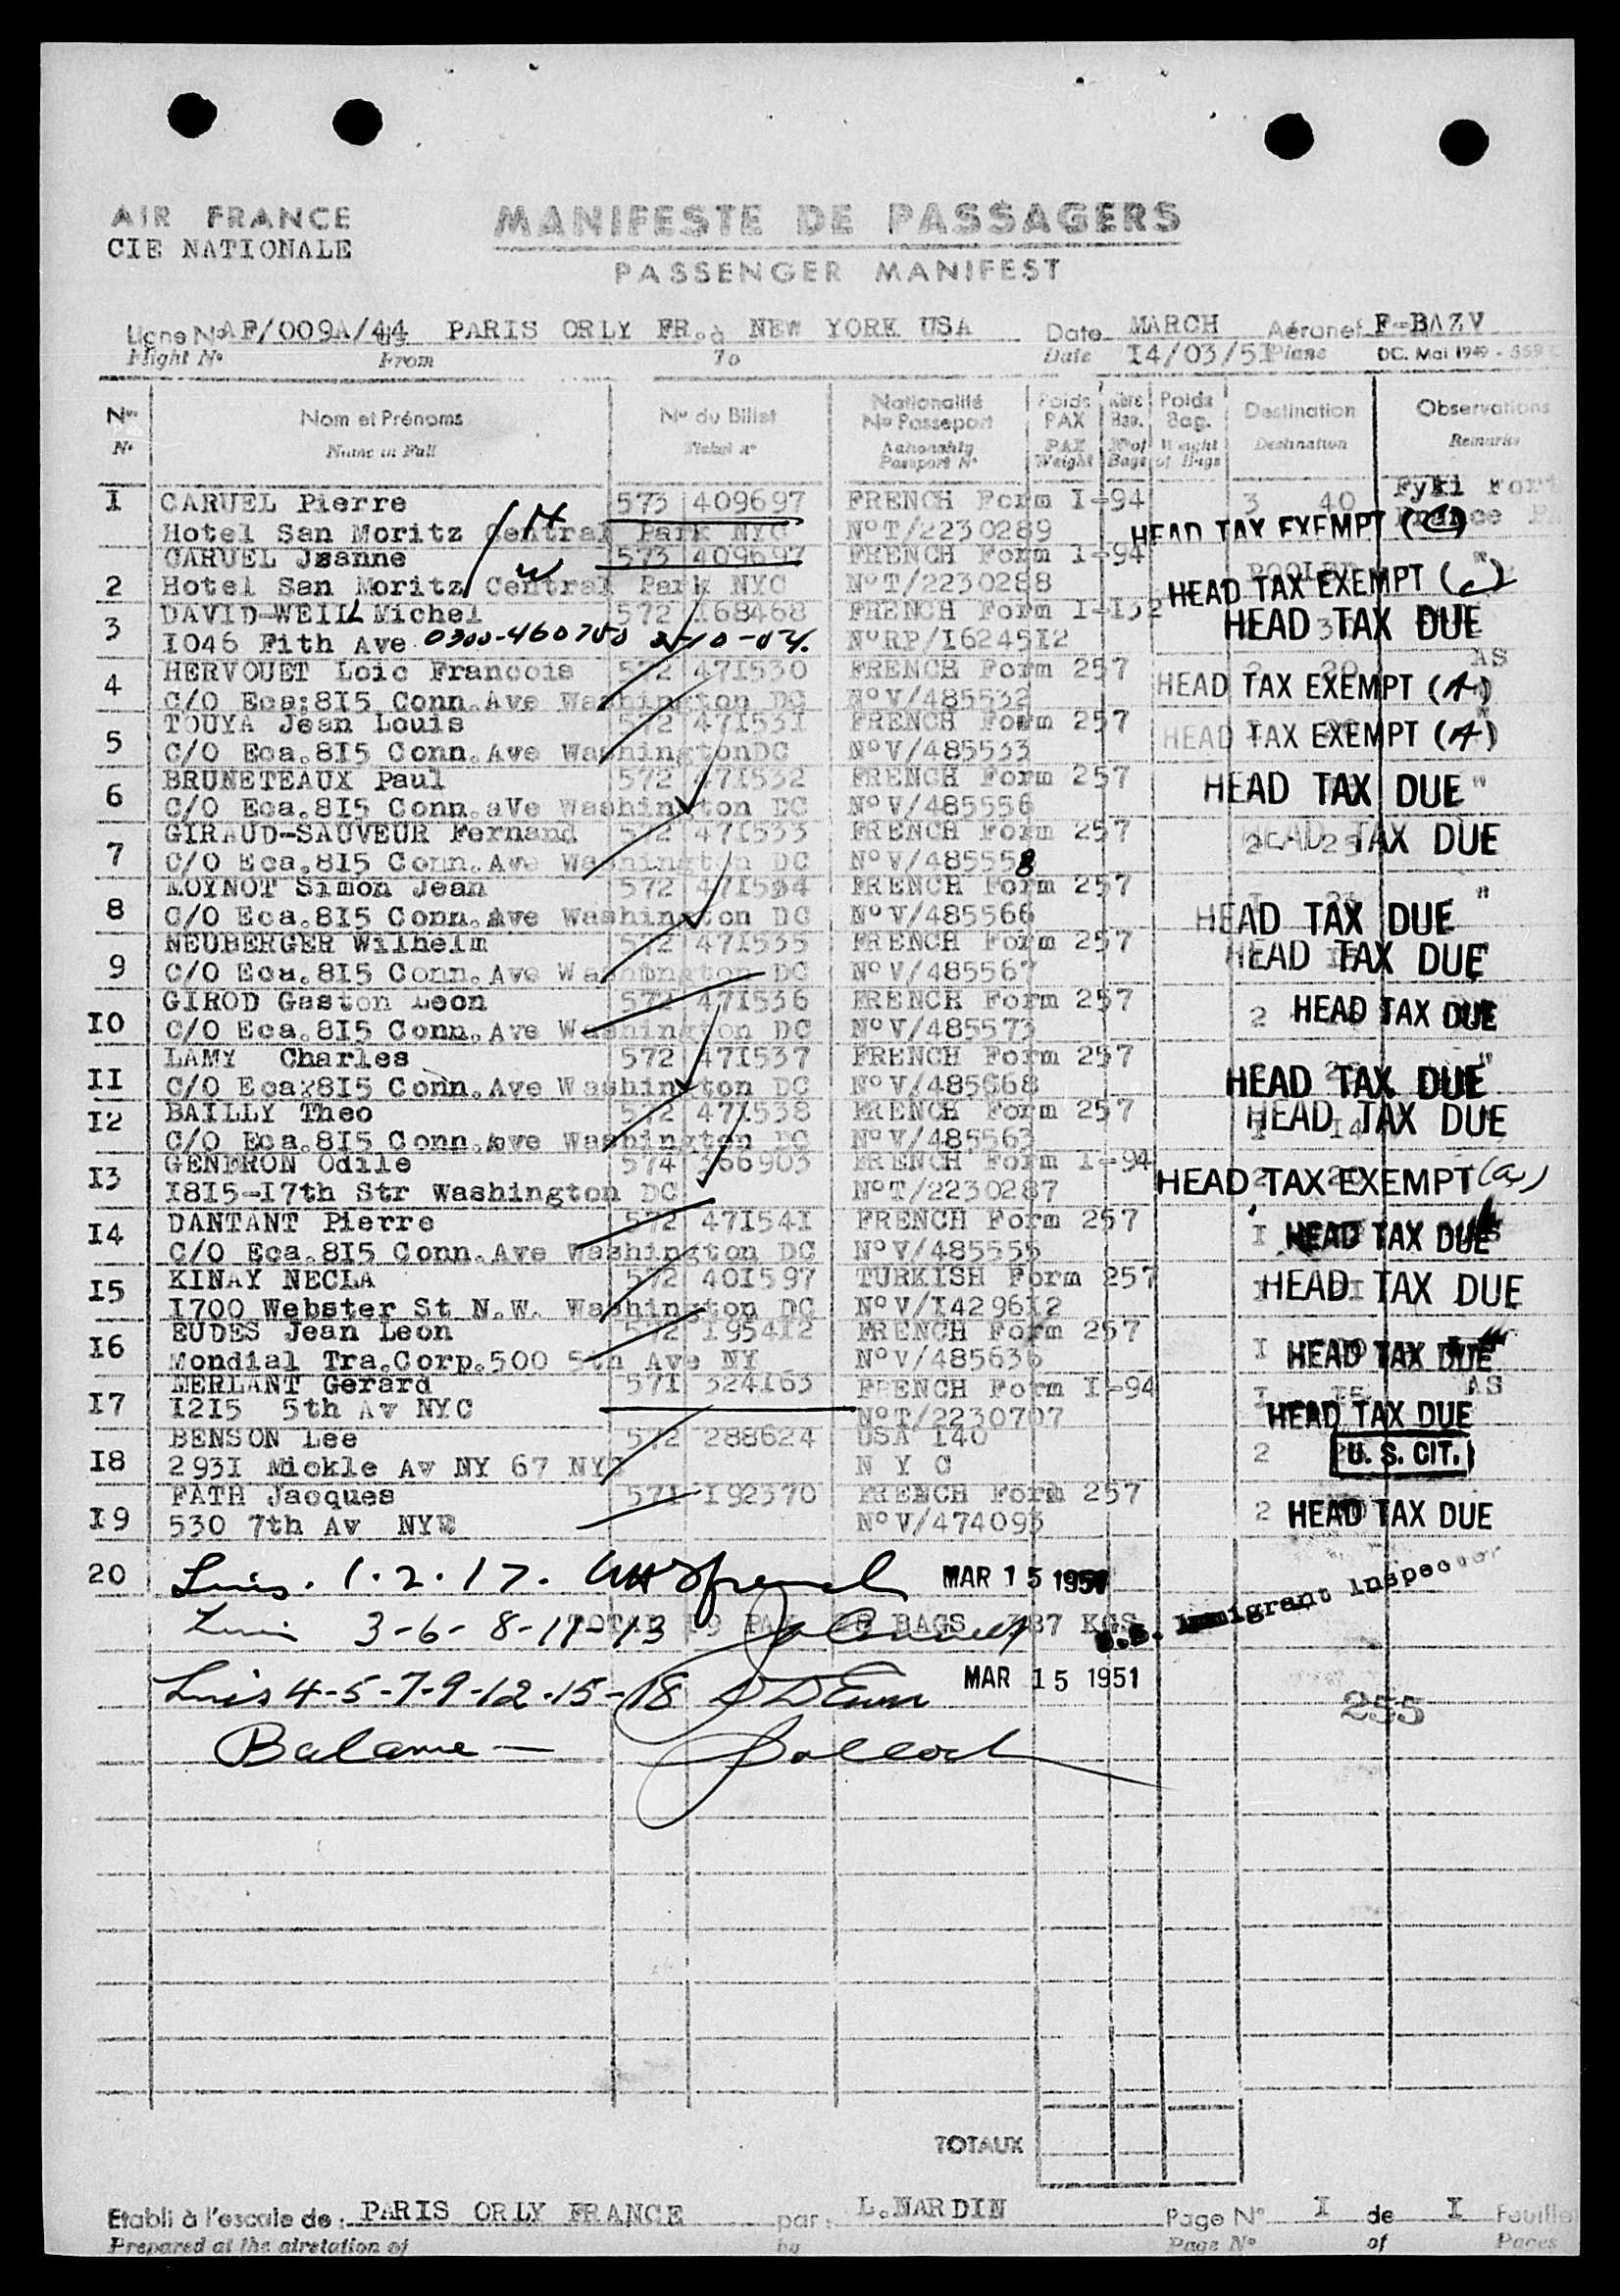 AIR FRANCE
CIE NATIONALE
MANIFESTE DE PASSAGERS
PASSENGER MANIFEST
Ligne No AF/009A/44 PARIS ORLY FR. à NEW YORK USA Date MARCH Aéronef F-BAZV
Flight No From To Date 14/03/51 Plane DC. Mai 1949 - 559
Nos Nom et Prénoms No du Billet Nationalité No Passeport Poids PAX Nbre Bag. Poids Bag. Destination Observations
No Name in Full Ticket no Nationality Passport No PAX Weight No of Bags Weight of Bags Destination Remarks
I CARUEL Pierre 573 409697 FRENCH Form I-94 3 40
Hotel San Moritz Central Park NYC NoT/2230289 HEAD TAX EXEMPT
CARUEL Jeanne 573 409697 FRENCH Form I-94
2 Hotel San Moritz Central Park NYC NoT/2230288 HEAD TAX EXEMPT
3 DAVID-WEILL Michel 572 168468 FRENCH Form I-I32 HEAD TAX DUE
I046 Fith Ave 0300-460700 2-10-04. NoRP/I6245I2
4 HERVOUET Loic Francois 572 47I530 FRENCH Form 257 2 20 AS
C/O Eca:8I5 Conn.Ave Washington DC NoV/485532 HEAD TAX EXEMPT (A)
5 TOUYA Jean Louis 572 47I53I FRENCH Form 257
C/O Eca.8I5 Conn.Ave WashingtonDC NoV/485533 HEAD TAX EXEMPT (A)
6 BRUNETEAUX Paul 572 47I532 FRENCH Form 257 HEAD TAX DUE "
C/O Eca.8I5 Conn.aVe Washington DC NoV/485556
7 GIRAUD-SAUVEUR Fernand 572 47I533 FRENCH Form 257 HEAD TAX DUE
C/O Eca.8I5 Conn.Ave Washington DC NoV/485558
8 MOYNOT Simon Jean 572 47I534 FRENCH Form 257 "
C/O Eca.8I5 Conn.Ave Washington DC NoV/485566 HEAD TAX DUE
9 NEUBERGER Wilhelm 572 47I535 FRENCH Form 257 HEAD TAX DUE
C/O Eca.8I5 Conn.Ave Washington DC NoV/485567
GIROD Gaston Leon 572 47I536 FRENCH Form 257 2 HEAD TAX DUE
I0 C/O Eca.8I5 Conn.Ave Washington DC NoV/485573
LAMY Charles 572 47I537 FRENCH Form 257 "
II C/O Eca:8I5 Conn.Ave Washington DC NoV/485668 HEAD TAX DUE
I2 BAILLY Theo 572 47I538 FRENCH Form 257 HEAD TAX DUE
C/O Eca.8I5 Conn.Ave Washington DC NoV/485563 I I4
I3 GENDRON Odile 574 366903 FRENCH Form I-94
I8I5-I7th Str Washington DC NoT/2230287 HEAD TAX EXEMPT
I4 DANTANT Pierre 572 47I54I FRENCH Form 257 I HEAD TAX DUE
C/O Eca.8I5 Conn.Ave Washington DC NoV/485555
I5 KINAY NECLA 572 40I597 TURKISH Form 257 HEAD TAX DUE
I700 Webster St N.W. Washington DC NoV/I4296I2
I6 EUDES Jean Leon 572 I954I2 FRENCH Form 257 I HEAD TAX DUE
Mondial Tra.Corp.500 5th Ave NY NoV/485636
MERLANT Gerard 57I 324I63 FRENCH Form I-94 I I5 AS
I7 I2I5 5th Av NYC NoT/2230707 HEAD TAX DUE
BENSON Lee 572 288624 USA I40 2 U. S. CIT.
I8 293I Mickle Av NY 67 NYC N Y C
FATH Jacques 57I I92370 FRENCH Form 257 2 HEAD TAX DUE
I9 530 7th Av NYC NoV/474093
20 Lines. 1.2.17. MAR 15 1951
TOTAL I9 PAX BAGS 387 KGS
3-6-8-11-13 U.S. Immigrant Inspector
Lines 4-5-7-9-12-15-18 MAR 15 1951
255
Balance —
TOTAUX
Etabli à l'escale de : PARIS ORLY FRANCE par : L.NARDIN Page No I de I Feuille
Prepared at the airstation of by Page No of Pages